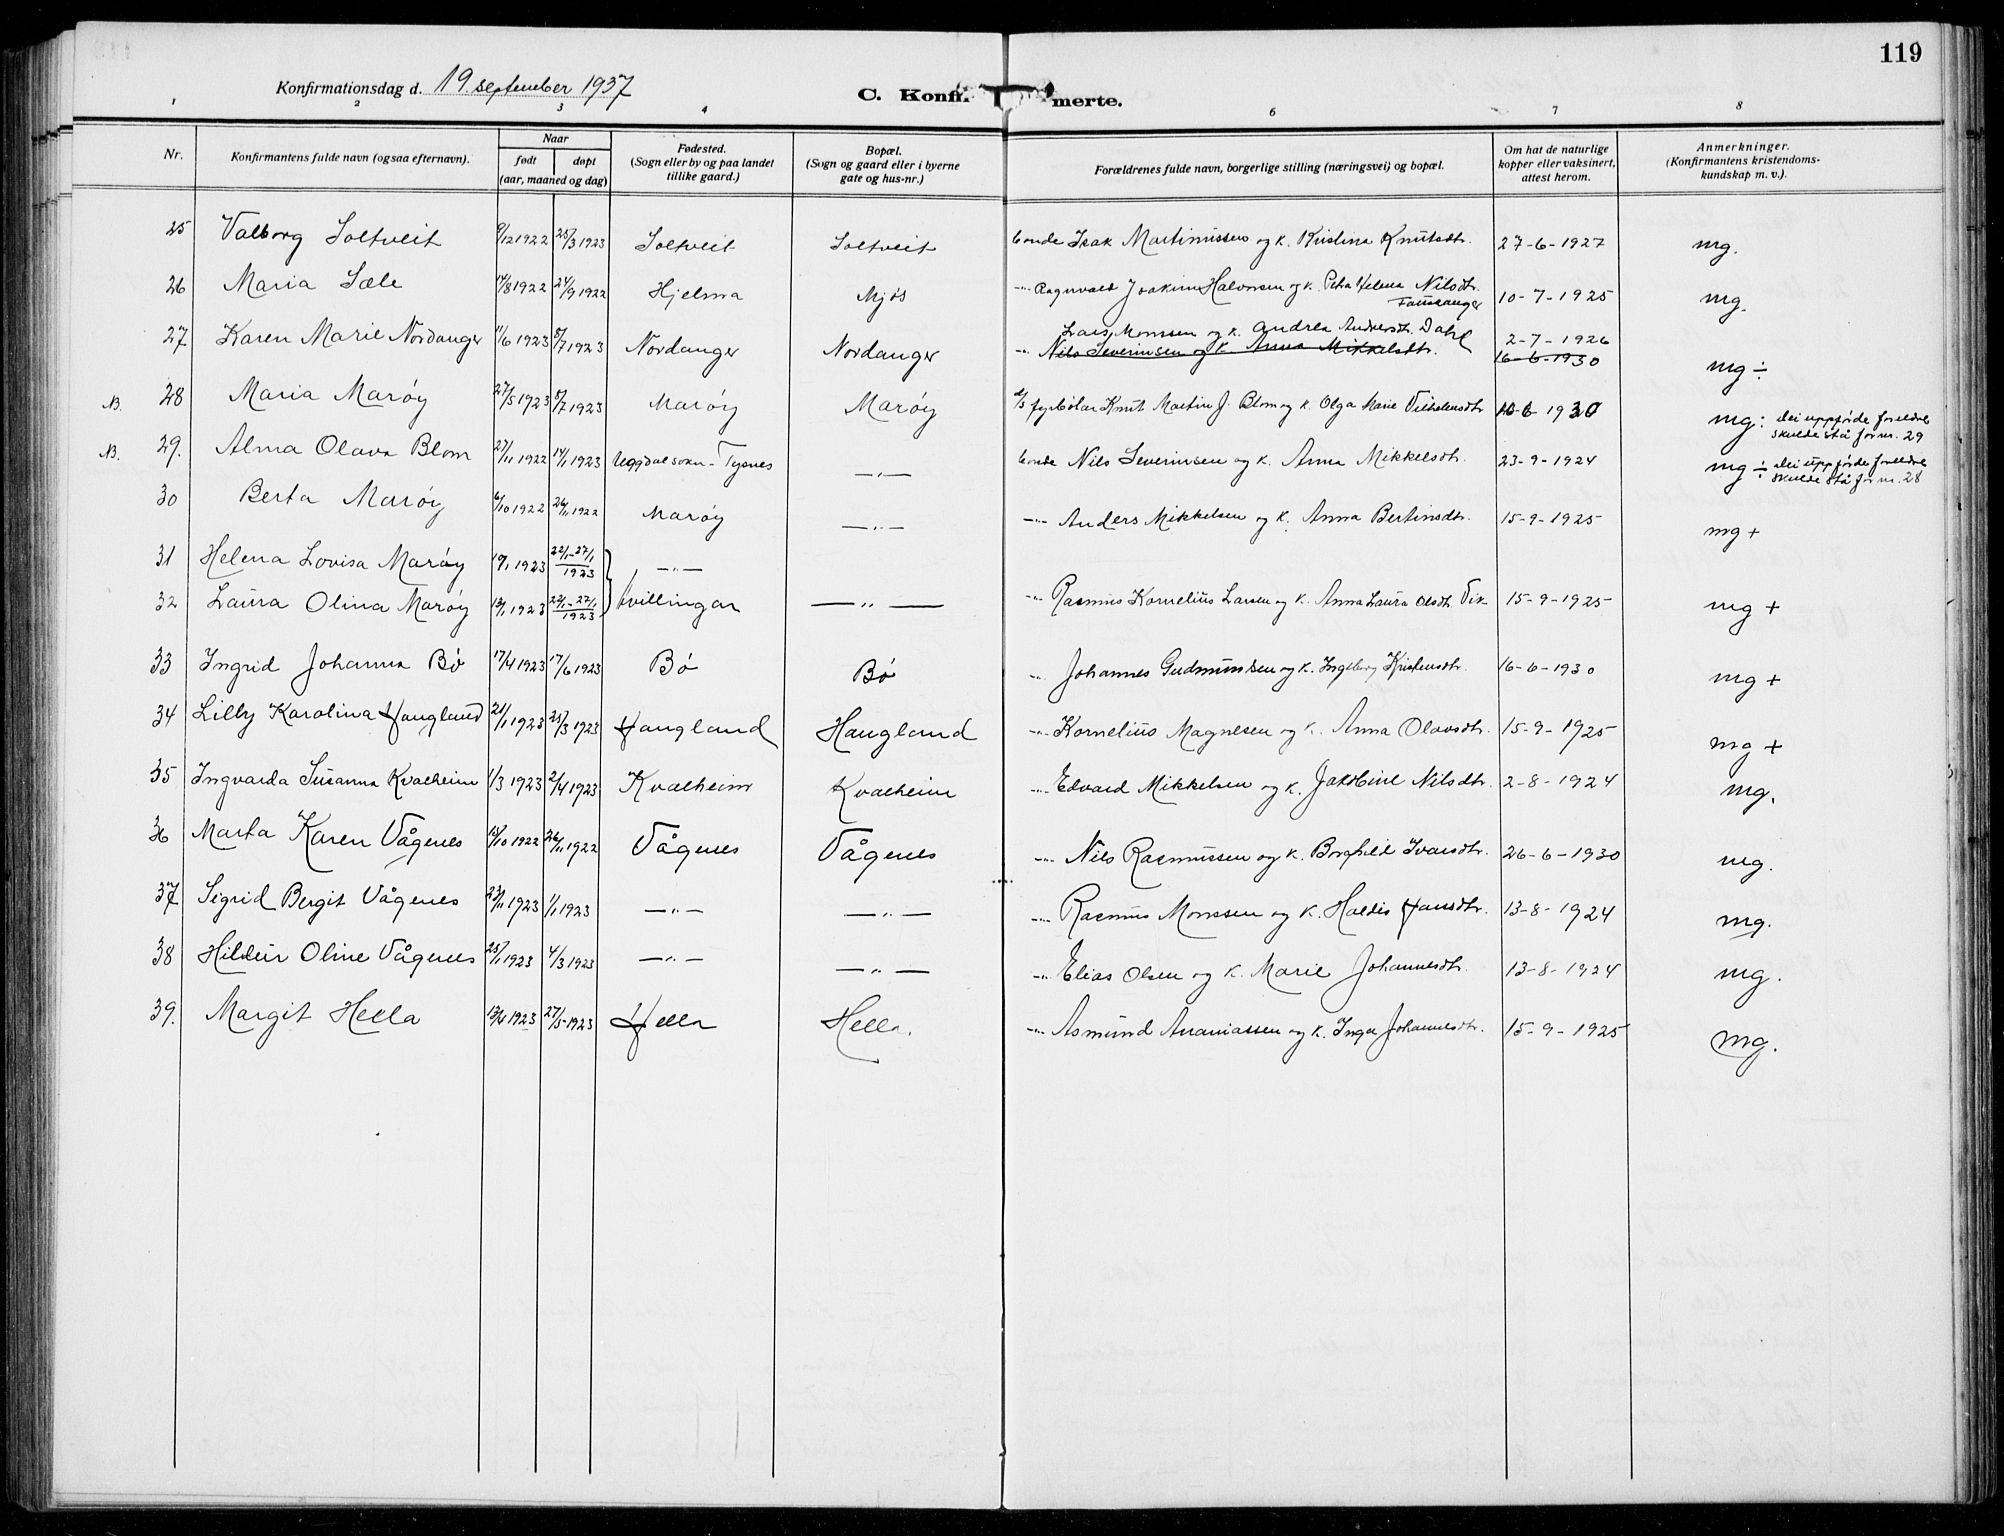 119
Konfirmationsdag d. 19. september 1937
C. Konfirmerte.
1 2 3 4 6 7 8
Nr. Konfirmantens fulde navn (ogsaa efternavn). Naar født døpt (aar, maaned og dag) Fødested. (Sogn eller by og paa landet tillike gaard.) Bopæl. (Sogn og gaard eller i byerne gate og hus-nr.) Forældrenes fulde navn, borgerlige stilling (næringsvei) og bopæl. Om hat de naturlige kopper eller vaksinert, attest herom. Anmerkninger. (Konfirmantens kristendoms-kundskap m. v.).
25 Valborg Soltveit 9/12 1922 25/3 1923 Soltveit Soltveit bonde Isak Martinussen og k. Kristina Knutsdtr. 27-6-1927 mg.
26 Maria Sæle 14/8 1922 24/9 1922 Hjelma Mjøs -"- Ragnvald Joakim Halvorsen og k. Petra Helena Nilsdtr. Fammeanger 10-7-1925 mg.
27 Karen Marie Nordanger 11/6 1923 8/7 1923 Nordanger Nordanger Lars Monssen og k. Andrea Andersdtr. Dahl 2-7-1926
-"- Nils Severinsen og k. Anna Mikkelsdtr. 16-6-1930 mg ÷
N. 28 Maria Marøy 27/5 1923 8/7 1923 Marøy Marøy fyrbøtar Knut Martin J. Blom og k. Olga Marie Vilhelmsdtr 16-6 1930 mg: Dei uppførde foreldre skulde stå for nr. 29
N. 29. Alma Olava Blom 27/11 1922 14/1 1923 Uggdal sokn - Tysnes -"- bonde Nils Severinsen og k. Anna Mikkelsdtr. 23-9-1924 mg ÷ Dei uppførde foreldre skulde stå for nr. 28
30 Berta Marøy 6/10 1922 26/11 1922 Marøy -"- -"- Anders Mikkelsen og k. Anna Bertinsdtr. 15-9-1925 mg +
31 Helena Lovisa Marøy 10/1 1923 22/1-27/1 1923 -"-
32 Laura Olina Marøy 1923 22/1-27/1 1923 tvillingar -"- -"- Rasmus Kornelius Larsen og k. Anna Laura Olsdtr. Vik 15-9-1925 mg +
33 Ingrid Johanna Bø 17/4 1923 17/6 1923 Bø Bø -"- Johannes Gudmundsen og k. Ingeborg Kristensdtr. 16-6-1930 mg +
34 Lilly Karolina Haugland 21/1 1923 25/3 1923 Haugland Haugland -"- Kornelius Magnesen og k. Anna Olavsdtr. 15-9-1925 mg +
35 Ingvarda Susanna Kvalheim 1/3 1923 2/4 1923 Kvalheim Kvalheim -"- Edvard Mikkelsen og k. Jakobine Nilsdtr. 2-8-1924 mg.
36 Marta Karen Vågenes 1922 26/11 1922 Vågenes Vågenes -"- Nils Rasmussen og k. Borghild Ivarsdtr. 26-6-1930 mg.
37 Sigrid Bergit Vågenes 1923 1/1 1923 -"- -"- -"- Rasmus Monssen og k. Haldis Hansdtr. 13-8-1924 mg.
38 Hildur Oline Vågenes 25/1 1923 4/3 1923 -"- -"- -"- Elias Olsen og k. Marie Johannesdtr. 13-8-1924 mg.
39. Margit Hella 13/4 1923 27/5-1923 Hella Hella. -"- Asmund Ananiassen og k. Inga Johannesdtr. 15-9-1925 mg.